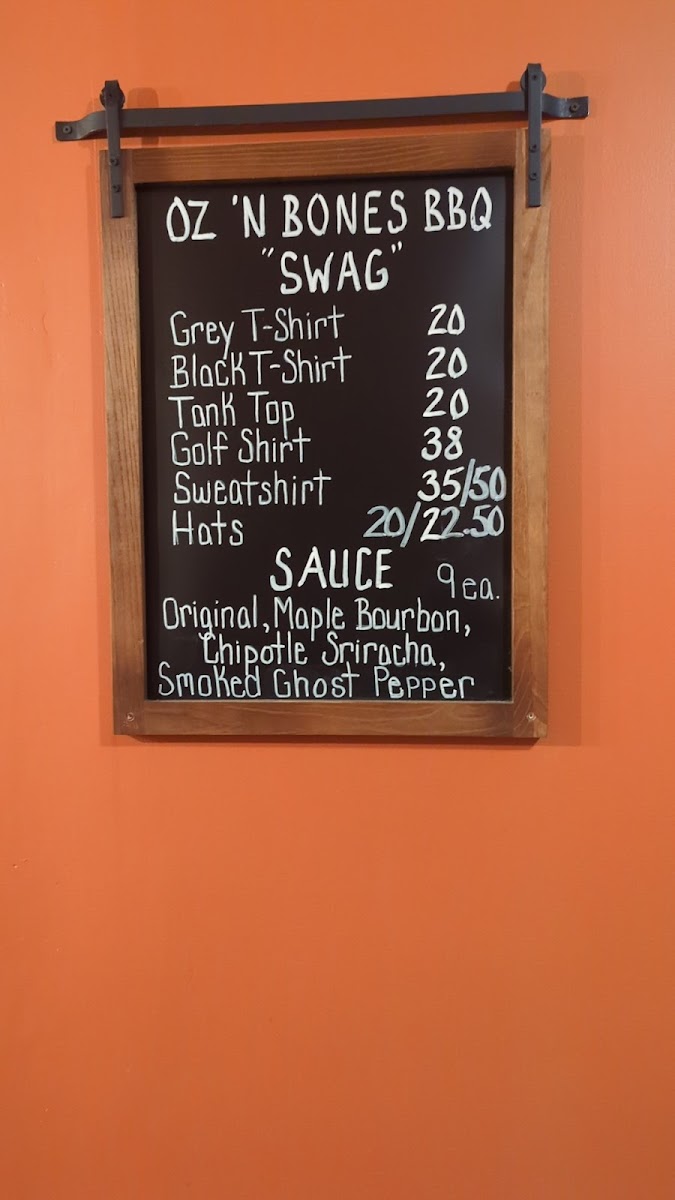 OZ 'N BONES BBQ
"SWAG"
Grey T-Shirt 20
Black T-Shirt 20
Tank Top 20
Golf Shirt 38
Sweatshirt 35/50
Hats 20/22.50
SAUCE 9 ea.
Original, Maple Bourbon,
Chipotle Sriracha,
Smoked Ghost Pepper